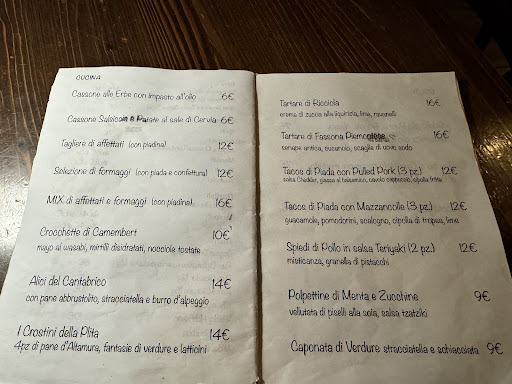 CUCINA
Cassone alle Erbe con impasto all'olio 6€
Cassone Salsiccia e Patate al sale di Cervia 6€
Tagliere di affettati (con piadina) 12€
Selezione di formaggi (con piada e confettura) 12€
MIX di affettati e formaggi (con piadina) 16€
Crocchette di Camembert 10€
mayo al wasabi, mirtilli disidratati, nocciole tostate
Alici del Cantabrico 14€
con pane abbrustolito, stracciatella e burro d'alpeggio
I Crostini della Plita 14€
4pz di pane d'Altamura, fantasie di verdure e latticini
Tartare di Ricciola 16€
crema di zucca alla liquirizia, lime, ravanelli
Tartare di Fassona Piemontese 16€
senape antica, cucunci, scaglie di uovo sodo
Tacos di Piada con Pulled Pork (3 pz.) 12€
salsa Cheddar, glassa al balsamico, cavolo cappuccio, cipolla fritta
Tacos di Piada con Mazzancolle (3 pz.) 12€
guacamole, pomodorini, scalogno, cipolla di tropea, lime
Spiedi di Pollo in salsa Teriyaki (2 pz.) 12€
misticanza, granella di pistacchi
Polpettine di Menta e Zucchine 9€
vellutata di piselli alla soia, salsa tzatziki
Caponata di Verdure stracciatella e schiacciata 9€